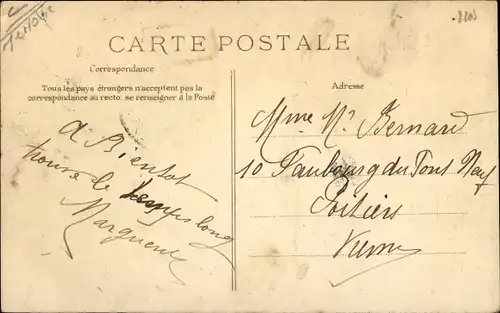 CARTE POSTALE
Correspondance
Tous les pays étrangers n'acceptent pas la
correspondance au recto, se renseigner à la Poste
A Bientot
trouve le temps long
Marguerite
Adresse
Mme Bernard
10 Faubourg du Pont Neuf
Poitiers
Vienne